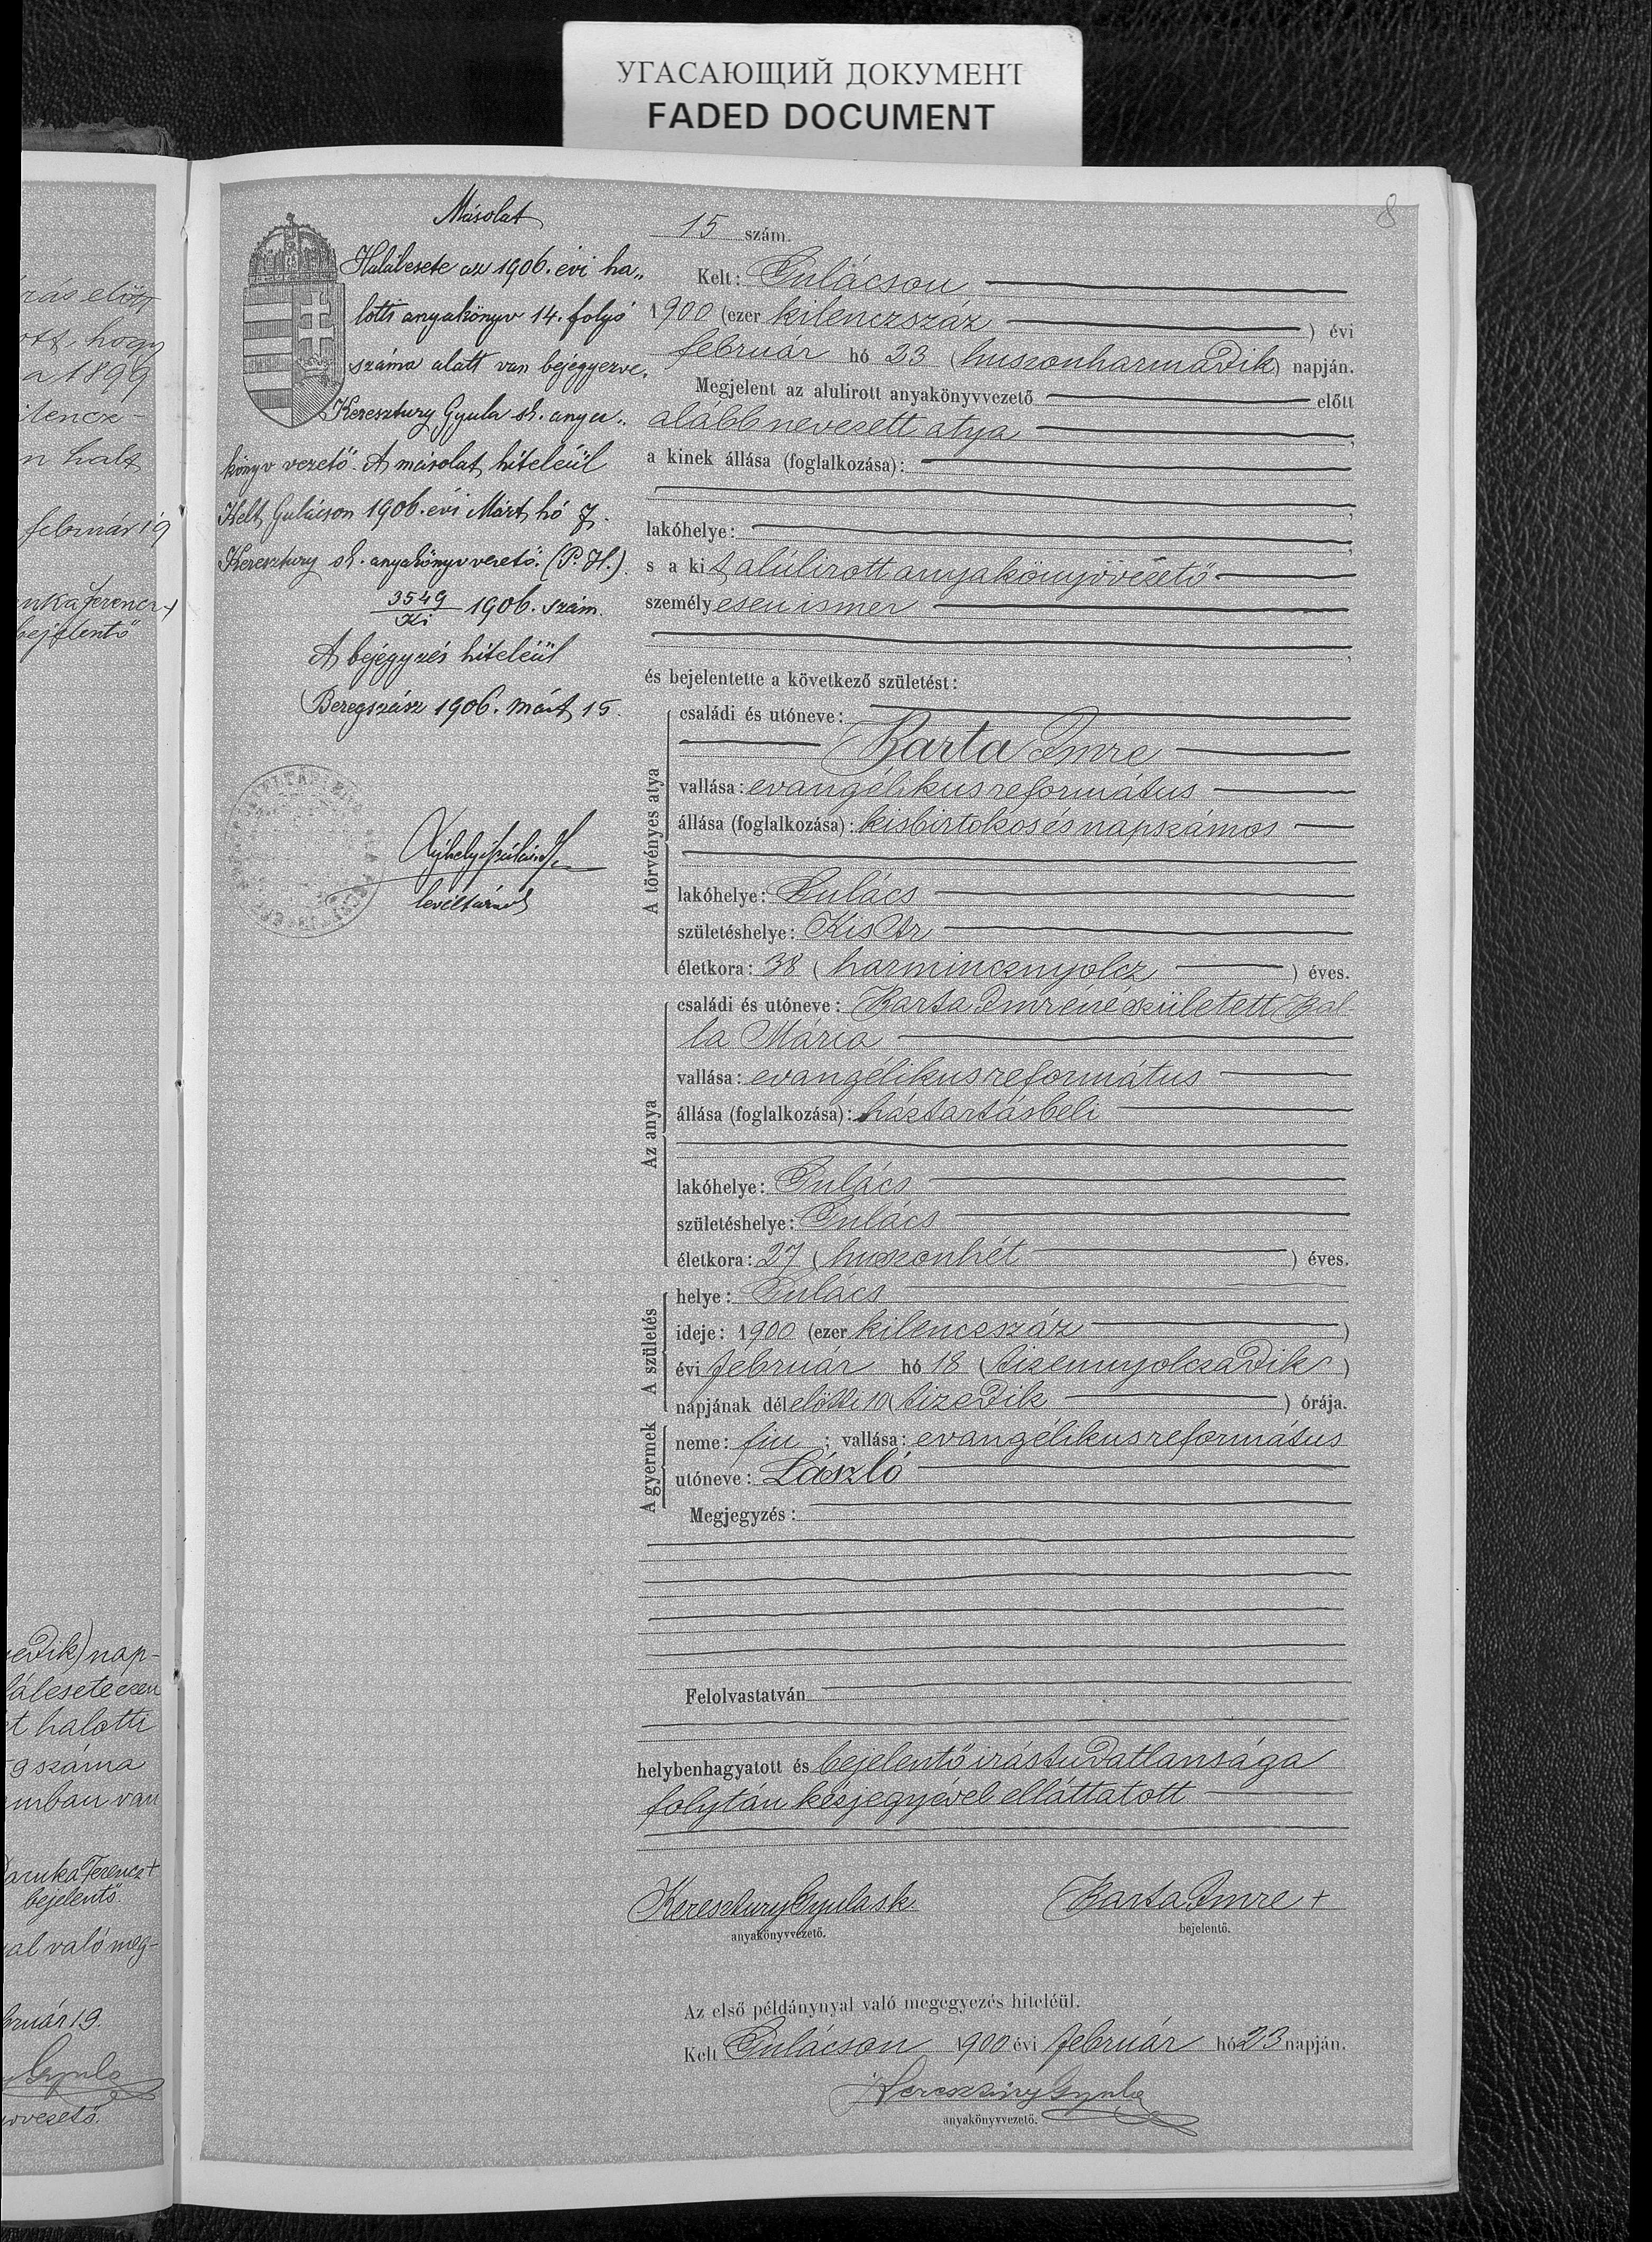 УГАСАЮЩИЙ ДОКУМЕНТ
FADED DOCUMENT
8
rás előtt
ott, hogy
a 1899
ilencz-
n halt
február 19
nka Ferencz +
bejelentő
edik) nap-
láleseteezen
t halotti
g száma
mban van
Danka Ferencz +
bejelentő.
al való meg-
bruár 19.
y Gyula
vvezető.
Másolat
Halálesete az 1906. évi ha„
lotti anyakönyv 14. folyó
száma alatt van bejegyezve.
Keresztury Gyula sk. anya„
könyv vezető. A másolat hiteléül
Kelt Gulácson 1906. évi Márt hó 7.
Keresztury sk. anyakönyvvezető. (P. H.)
3549
Ki 1906. szám.
A bejegyzés hiteléül
Beregszász 1906. márt 15.
levéltárnok
15 szám.
Kelt: Gulácson
1900 (ezer kilenczszáz ) évi
február hó 23 (huszonharmadik) napján.
Megjelent az alulirott anyakönyvvezető előtt
alább nevezett atya ;
a kinek állása (foglalkozása):
;
lakóhelye: ;
s a kit alúlirott anyakönyvvezető
személyesen ismer
;
és bejelentette a következő születést:
A törvényes atya
családi és utóneve:
Barta Imre
vallása: evangélikus református
állása (foglalkozása): kisbirtokos és napszámos
lakóhelye: Gulács
születéshelye: Kis Ar
életkora: 38 (harmincznyolcz ) éves.
Az anya
családi és utóneve: Barta Imréné született Bal-
la Mária
vallása: evangélikus református
állása (foglalkozása): háztartásbeli
lakóhelye: Gulács
születéshelye: Gulács
életkora: 27 (huszonhét ) éves.
A születés
helye: Gulács
ideje: 1900 (ezer kilenczszáz )
évi február hó 18 (tizennyolczadik )
napjának délelőtti 10 (tizedik ) órája.
A gyermek
neme: fiu ; vallása: evangélikus református
utóneve: László
Megjegyzés:
Felolvastatván
helybenhagyatott és bejelentő irástudatlansága
folytán kézjegyével elláttatott
Keresztury Gyula sk. Barta Imre +
anyakönyvvezető. bejelentő.
Az első példánynyal való megegyezés hiteléül.
Kelt Gulácson 1900 évi február hó 23 napján.
Keresztury Gyula
anyakönyvvezető.